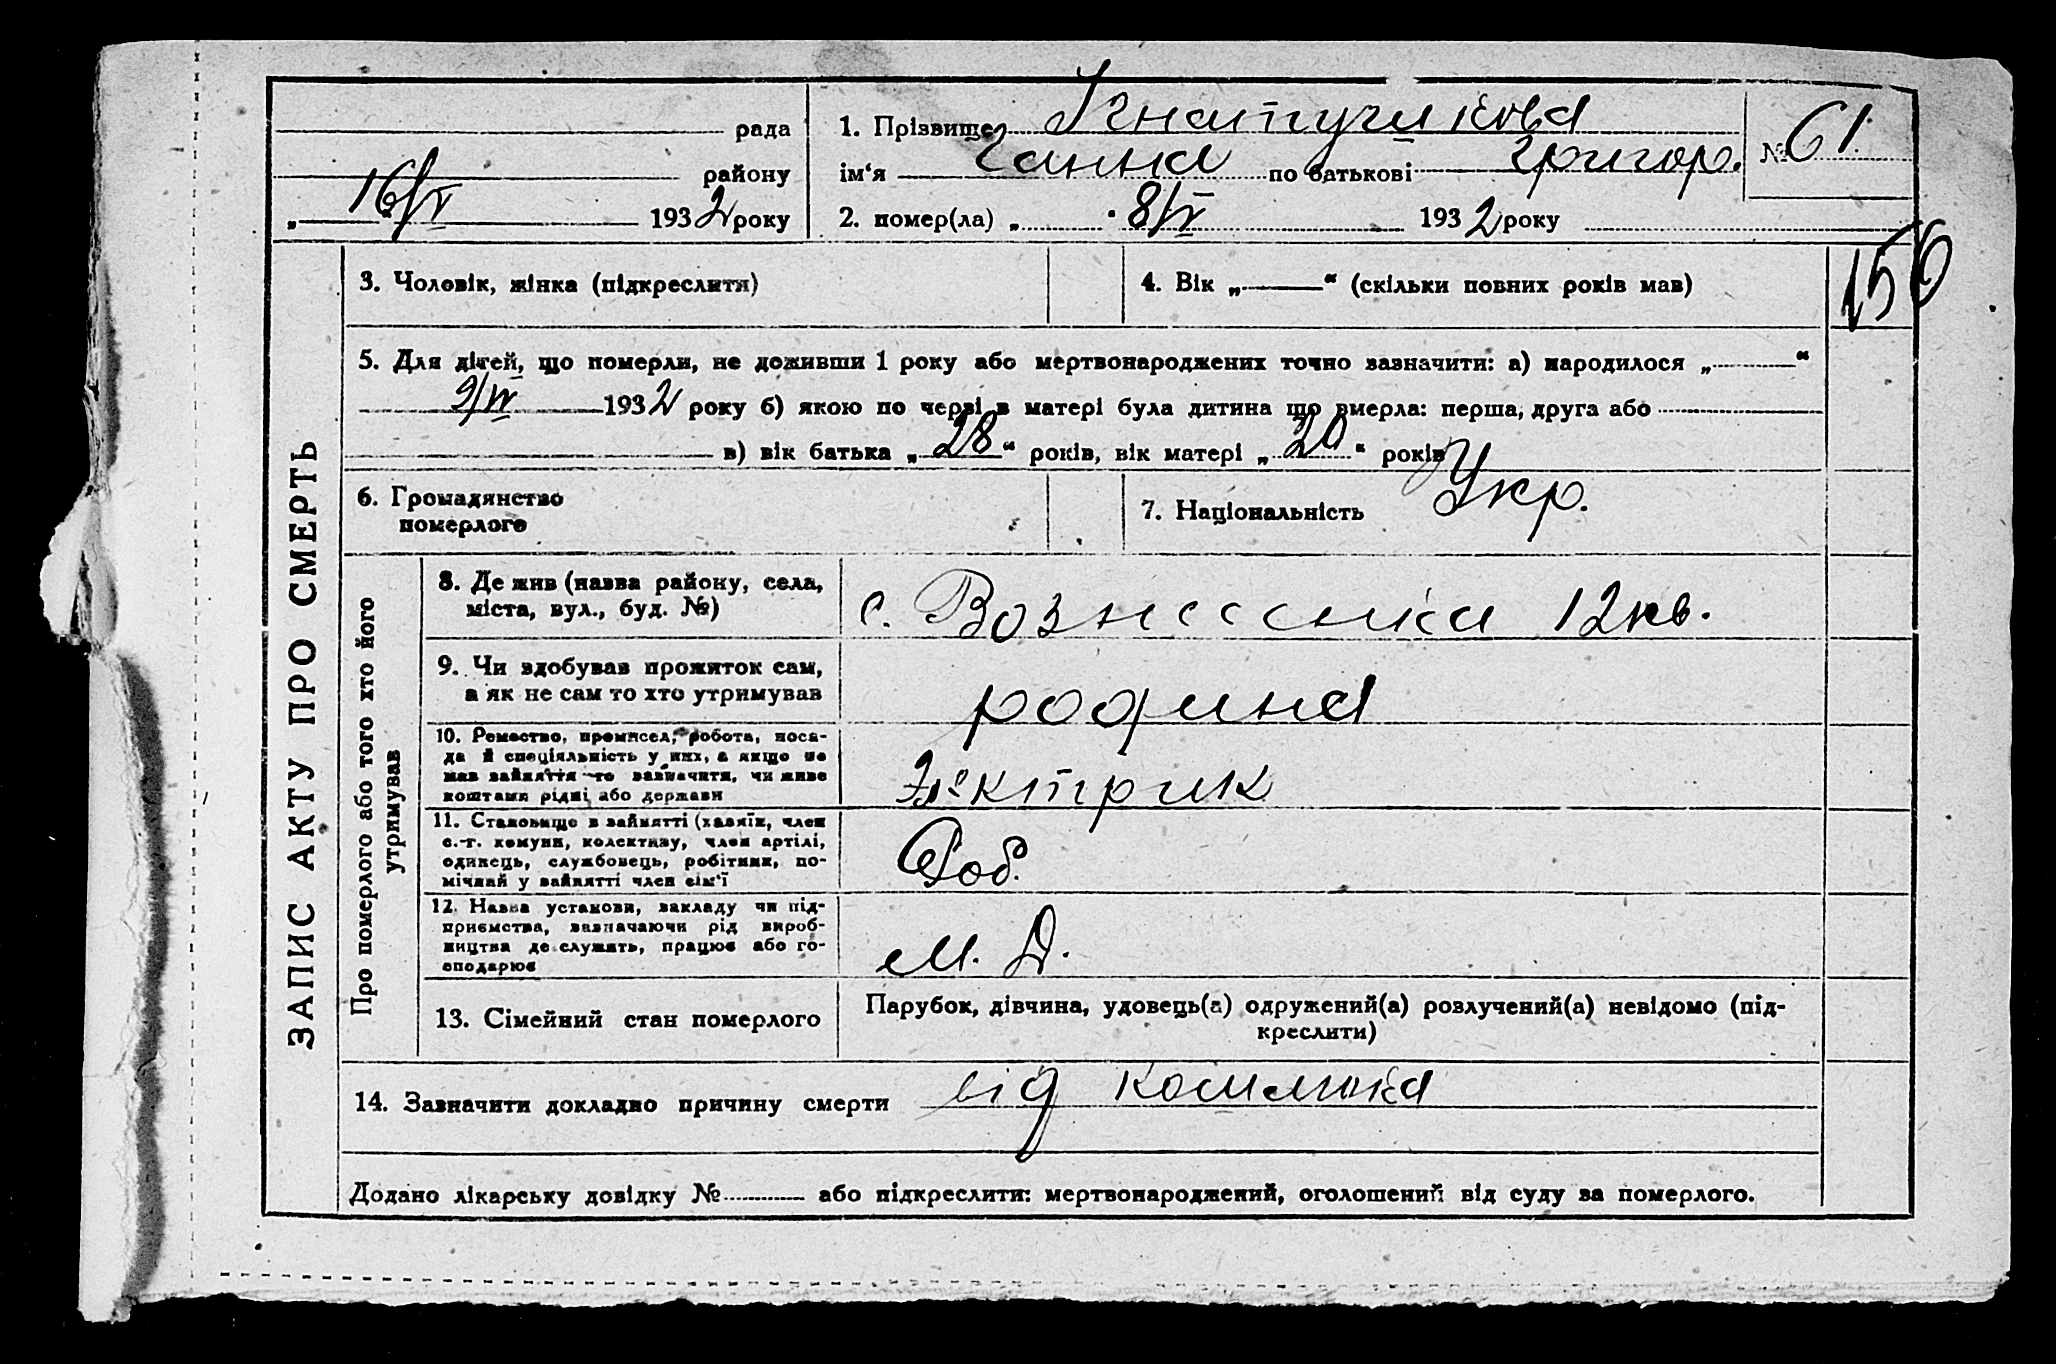 рада
району
„ 16/IV 1932 року
1. Прізвище Ігнатущикова
ім‘я Ганна по батькові Григор.
№ 61
2. помер(ла) „ 8/IV 1932 року
156
ЗАПИС АКТУ ПРО СМЕРТЬ
3. Чоловік, жінка (підкреслити)
4. Вік „ “ (скільки повних років мав)
5. Для дітей, що померли, не доживши 1 року або мертвонароджених точно зазначити: а) народилося „ “
1932 року б) якою по черзі в матері була дитина що вмерла: перша, друга або
в) вік батька „28“ років, вік матері „20“ років
6. Громадянство
померлого
7. Національність Укр.
Про померлого або того хто його
утримував
8. Де жив (назва району, села,
міста, вул., буд. №)
с. Вознесенка 12 кв.
9. Чи здобував прожиток сам,
а як не сам то хто утримував
родина
10. Ремество, промисел, робота, поса-
да й спеціяльність у них, а якщо не
мав зайняття то зазначити, чи живе
коштами рідні або держави
Электрик
11. Становище в зайнятті (хазяїн, член
с.-г. комуни, колективу, член артілі,
одинець, службовець, робітник, по-
мічний у зайнятті член сім‘ї
Роб.
12. Назва установи, закладу чи під-
приємства, зазначаючи рід вироб-
ництва де служить, працює або го-
сподарює
М. Д.
13. Сімейний стан померлого
Парубок, дівчина, удовець(а) одружений(а) розлучений(а) невідомо (під-
креслити)
14. Зазначити докладно причину смерти від кашлюка
Додано лікарську довідку № або підкреслити: мертвонароджений, оголошений від суду за померлого.